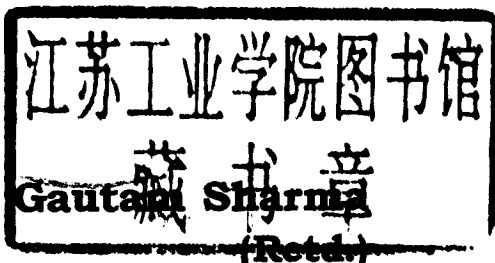 江苏工业学院图书馆
藏书章
Gautam Sharma
(Retd.)